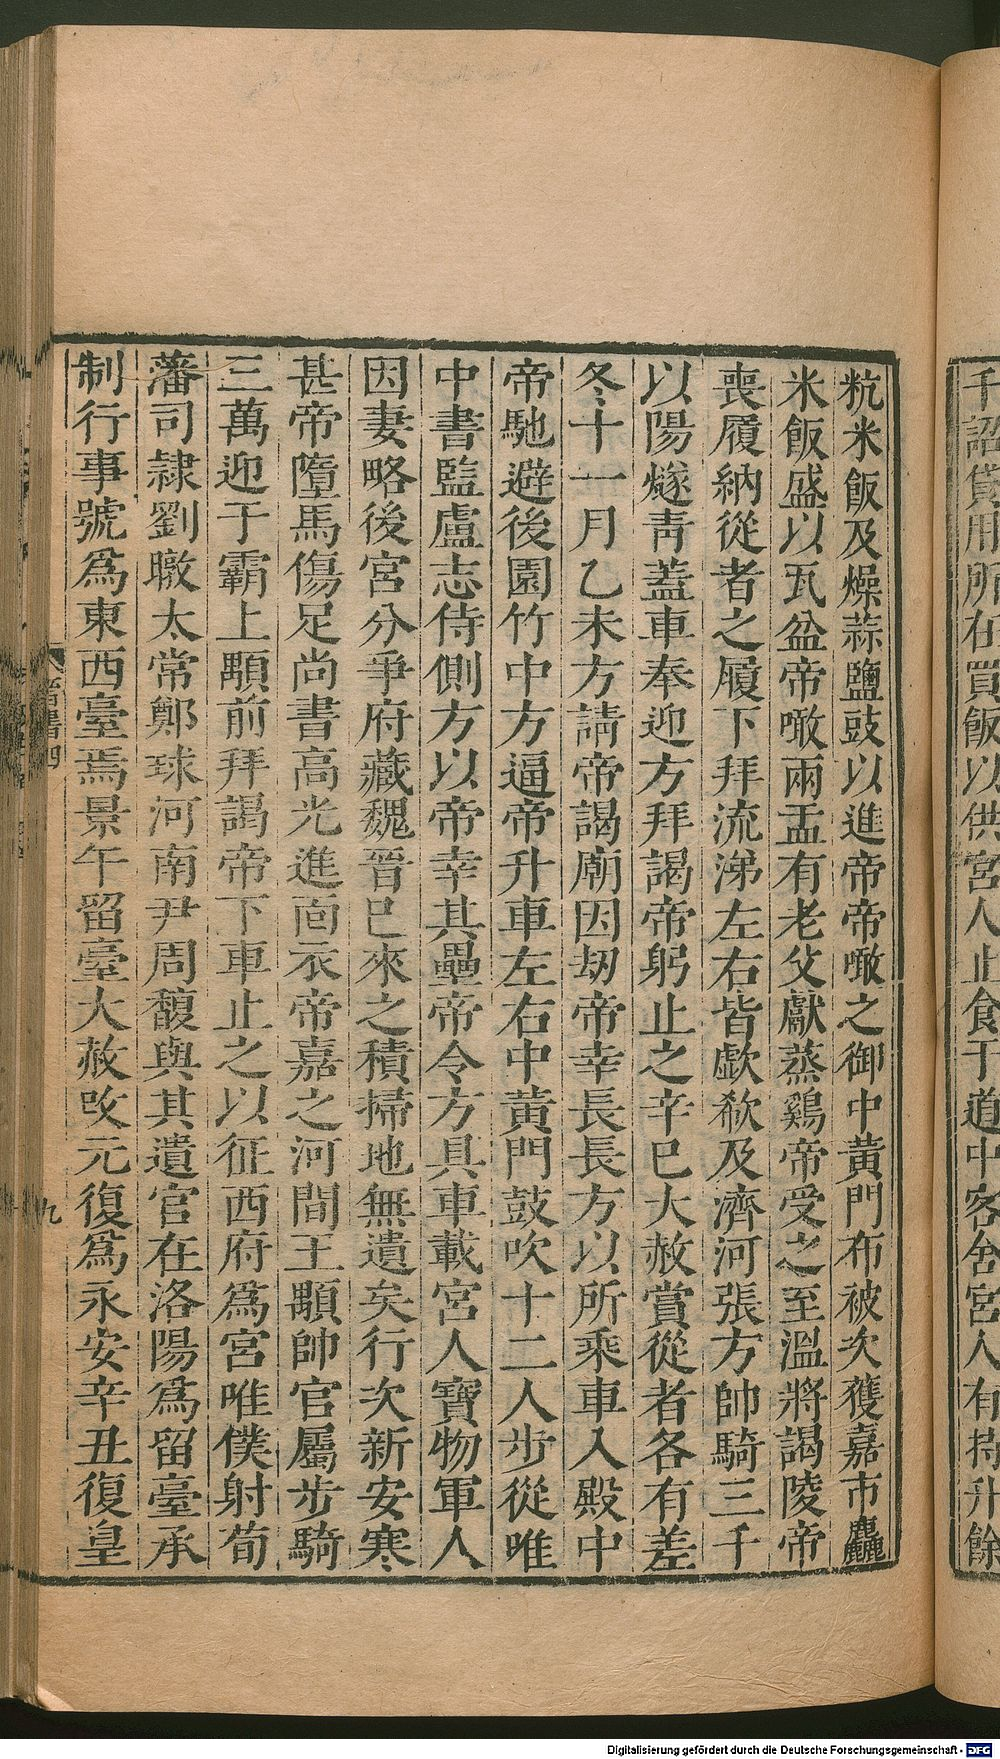 千詔貸用所在買飯以供宮人止食于道中客舍宮人有持升餘
秔米飯及燥蒜鹽豉以進帝帝噉之御中黃門布被次獲嘉市麤
米飯盛以瓦盆帝噉兩盂有老父獻蒸鷄帝受之至溫將謁陵帝
喪履納從者之履下拜流涕左右皆歔欷及濟河張方帥騎三千
以陽燧靑蓋車奉迎方拜謁帝躬止之辛巳大赦賞從者各有差
冬十一月乙未方請帝謁廟因劫帝幸長長方以所乘車入殿中
帝馳避後園竹中方逼帝升車左右中黃門鼓吹十二人步從唯
中書監盧志侍側方以帝幸其壘帝令方具車載宮人寶物軍人
因妻略後宮分爭府藏魏晉巳來之積掃地無遺矣行次新安寒
甚帝墮馬傷足尚書高光進面衣帝嘉之河間王顒帥官屬步騎
三萬迎于霸上顒前拜謁帝下車止之以征西府爲宮唯僕射荀
藩司隸劉暾太常鄭球河南尹周馥與其遺官在洛陽爲留臺承
制行事號爲東西臺焉景午留臺大赦改元復爲永安辛丑復皇
晉書四
九
Digitalisierung gefördert durch die Deutsche Forschungsgemeinschaft - DFG